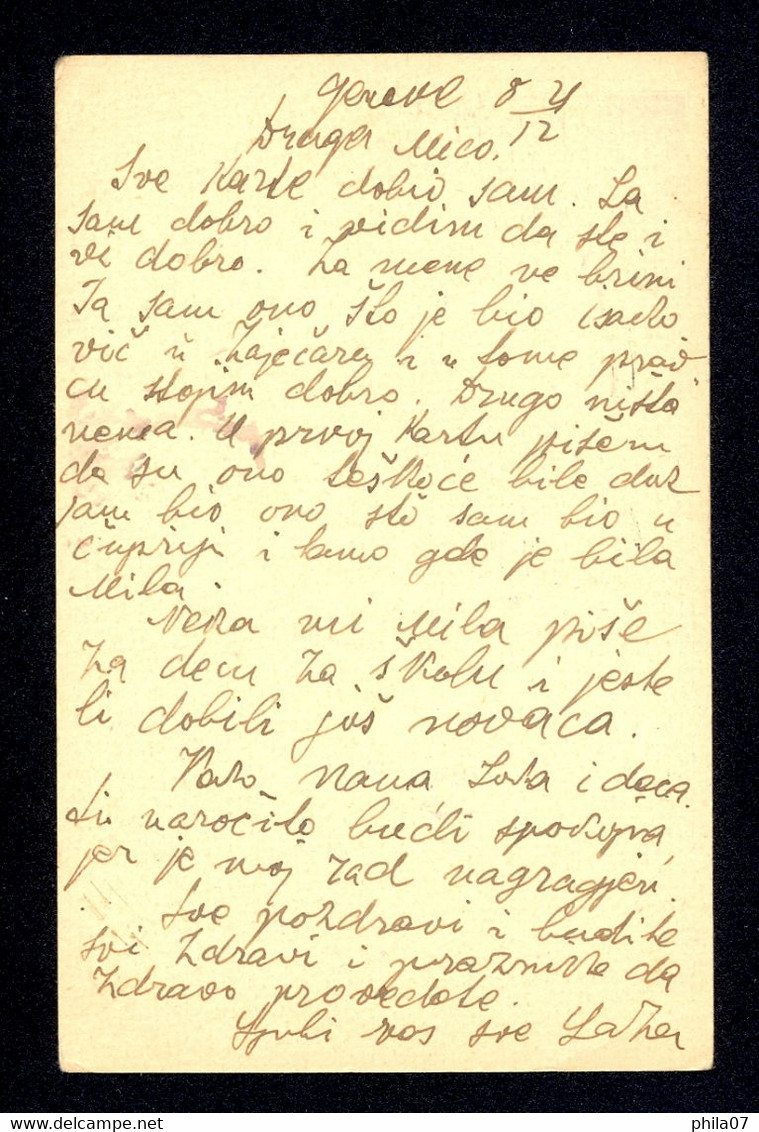 Draga Mico,
Sve karte dobio sam. Ja
sam dobro i vidim da ste i
vi dobro. Za mene ne brini
Ja sam ono što je bio
vič u Zaječaru i u tome
cu stojim dobro. Drugo ništa
nema. U prvoj kartu pišem
da su ono teškoće bile dok
sam bio ono što sam bio u
Čupriji i tamo gde je bila
Mila.
Neka mi Mila piše
za decu za školu i jeste
li dobili još novaca.
Kako nana i deca.
ti naročito budi spokojna
jer je moj rad nagragjen.
Sve pozdravi i budite
svi zdravi i praznike da
zdravo provedete.
Ljubi vas sve Lazar
delcampe.net
phila07